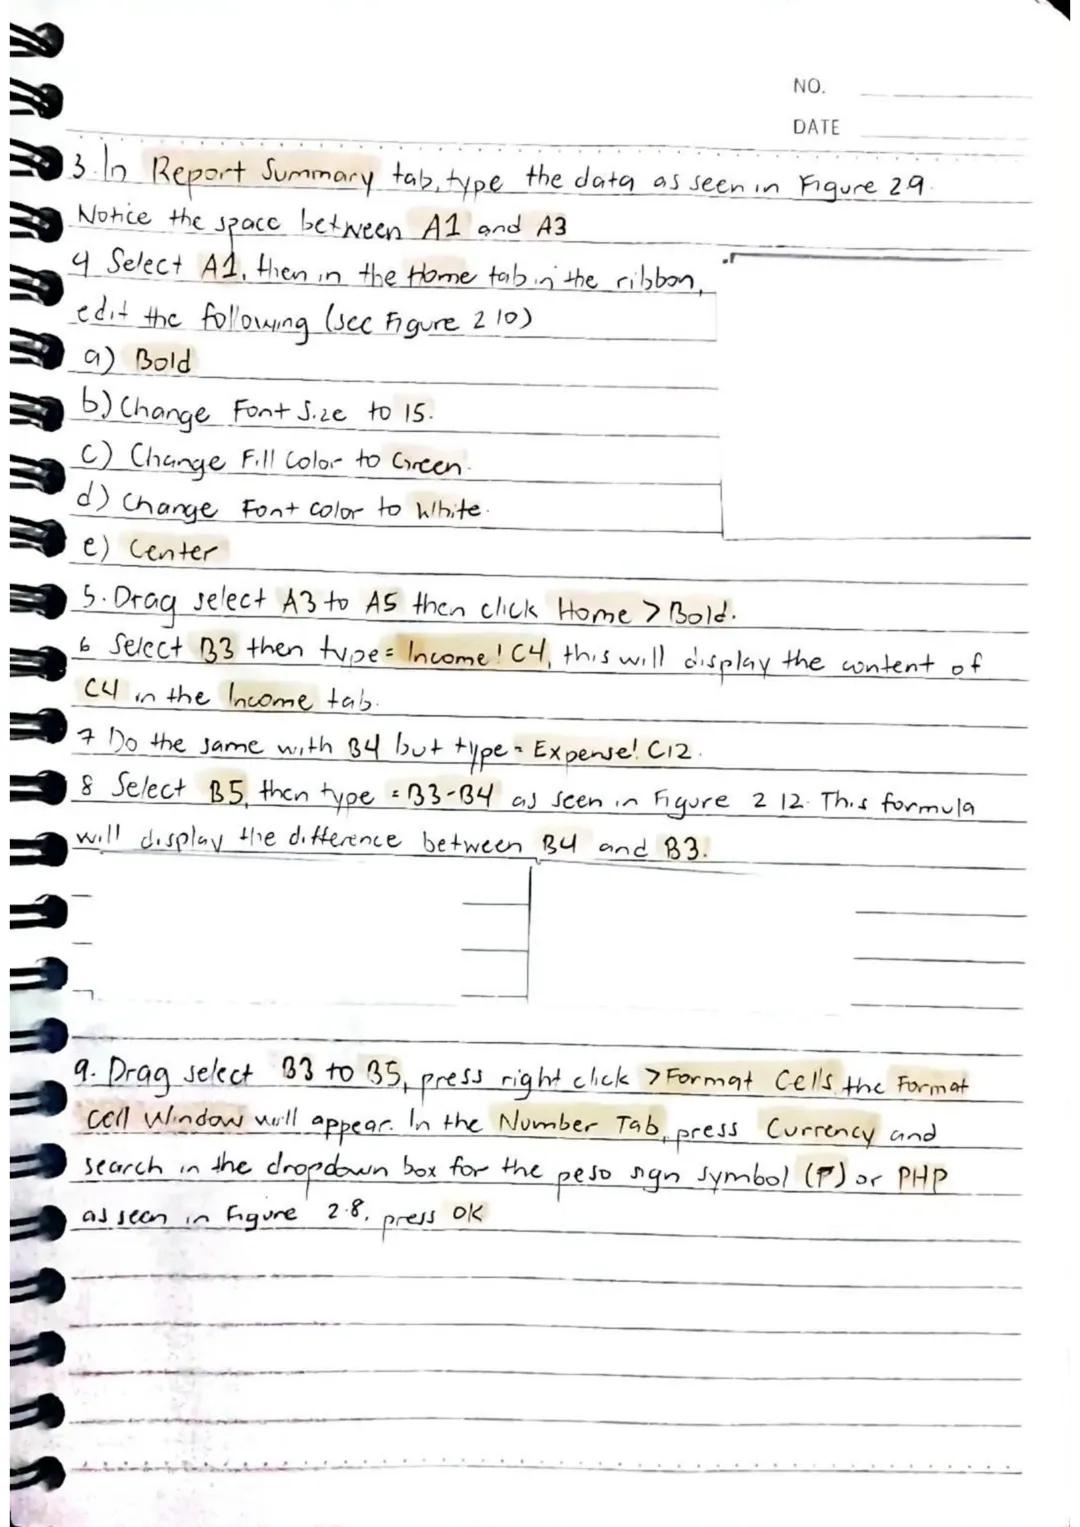 NO.
DATE
3. In Report Summary tab, type the data as seen in Figure 2.9.
Notice the space between A1 and A3
4 Select A1, then in the Home tab in the ribbon,
edit the following (see Figure 2 10)
a) Bold
b) Change Font Size to 15.
c) Change Fill Color to Green.
d) Change Font color to White.
e) Center
5. Drag select A3 to A5 then click Home > Bold.
6 Select B3 then type = Income! C4, this will display the content of
C4 in the Income tab.
7 Do the same with B4 but type = Expense! C12.
8 Select B5, then type = B3-B4 as seen in Figure 2 12. This formula
will display the difference between B4 and B3.
9. Drag select B3 to B5, press right click > Format Cells, the Format
Cell Window will appear. In the Number Tab, press Currency and
search in the dropdown box for the peso sign symbol (₱) or PHP
as seen in Figure 2.8, press OK